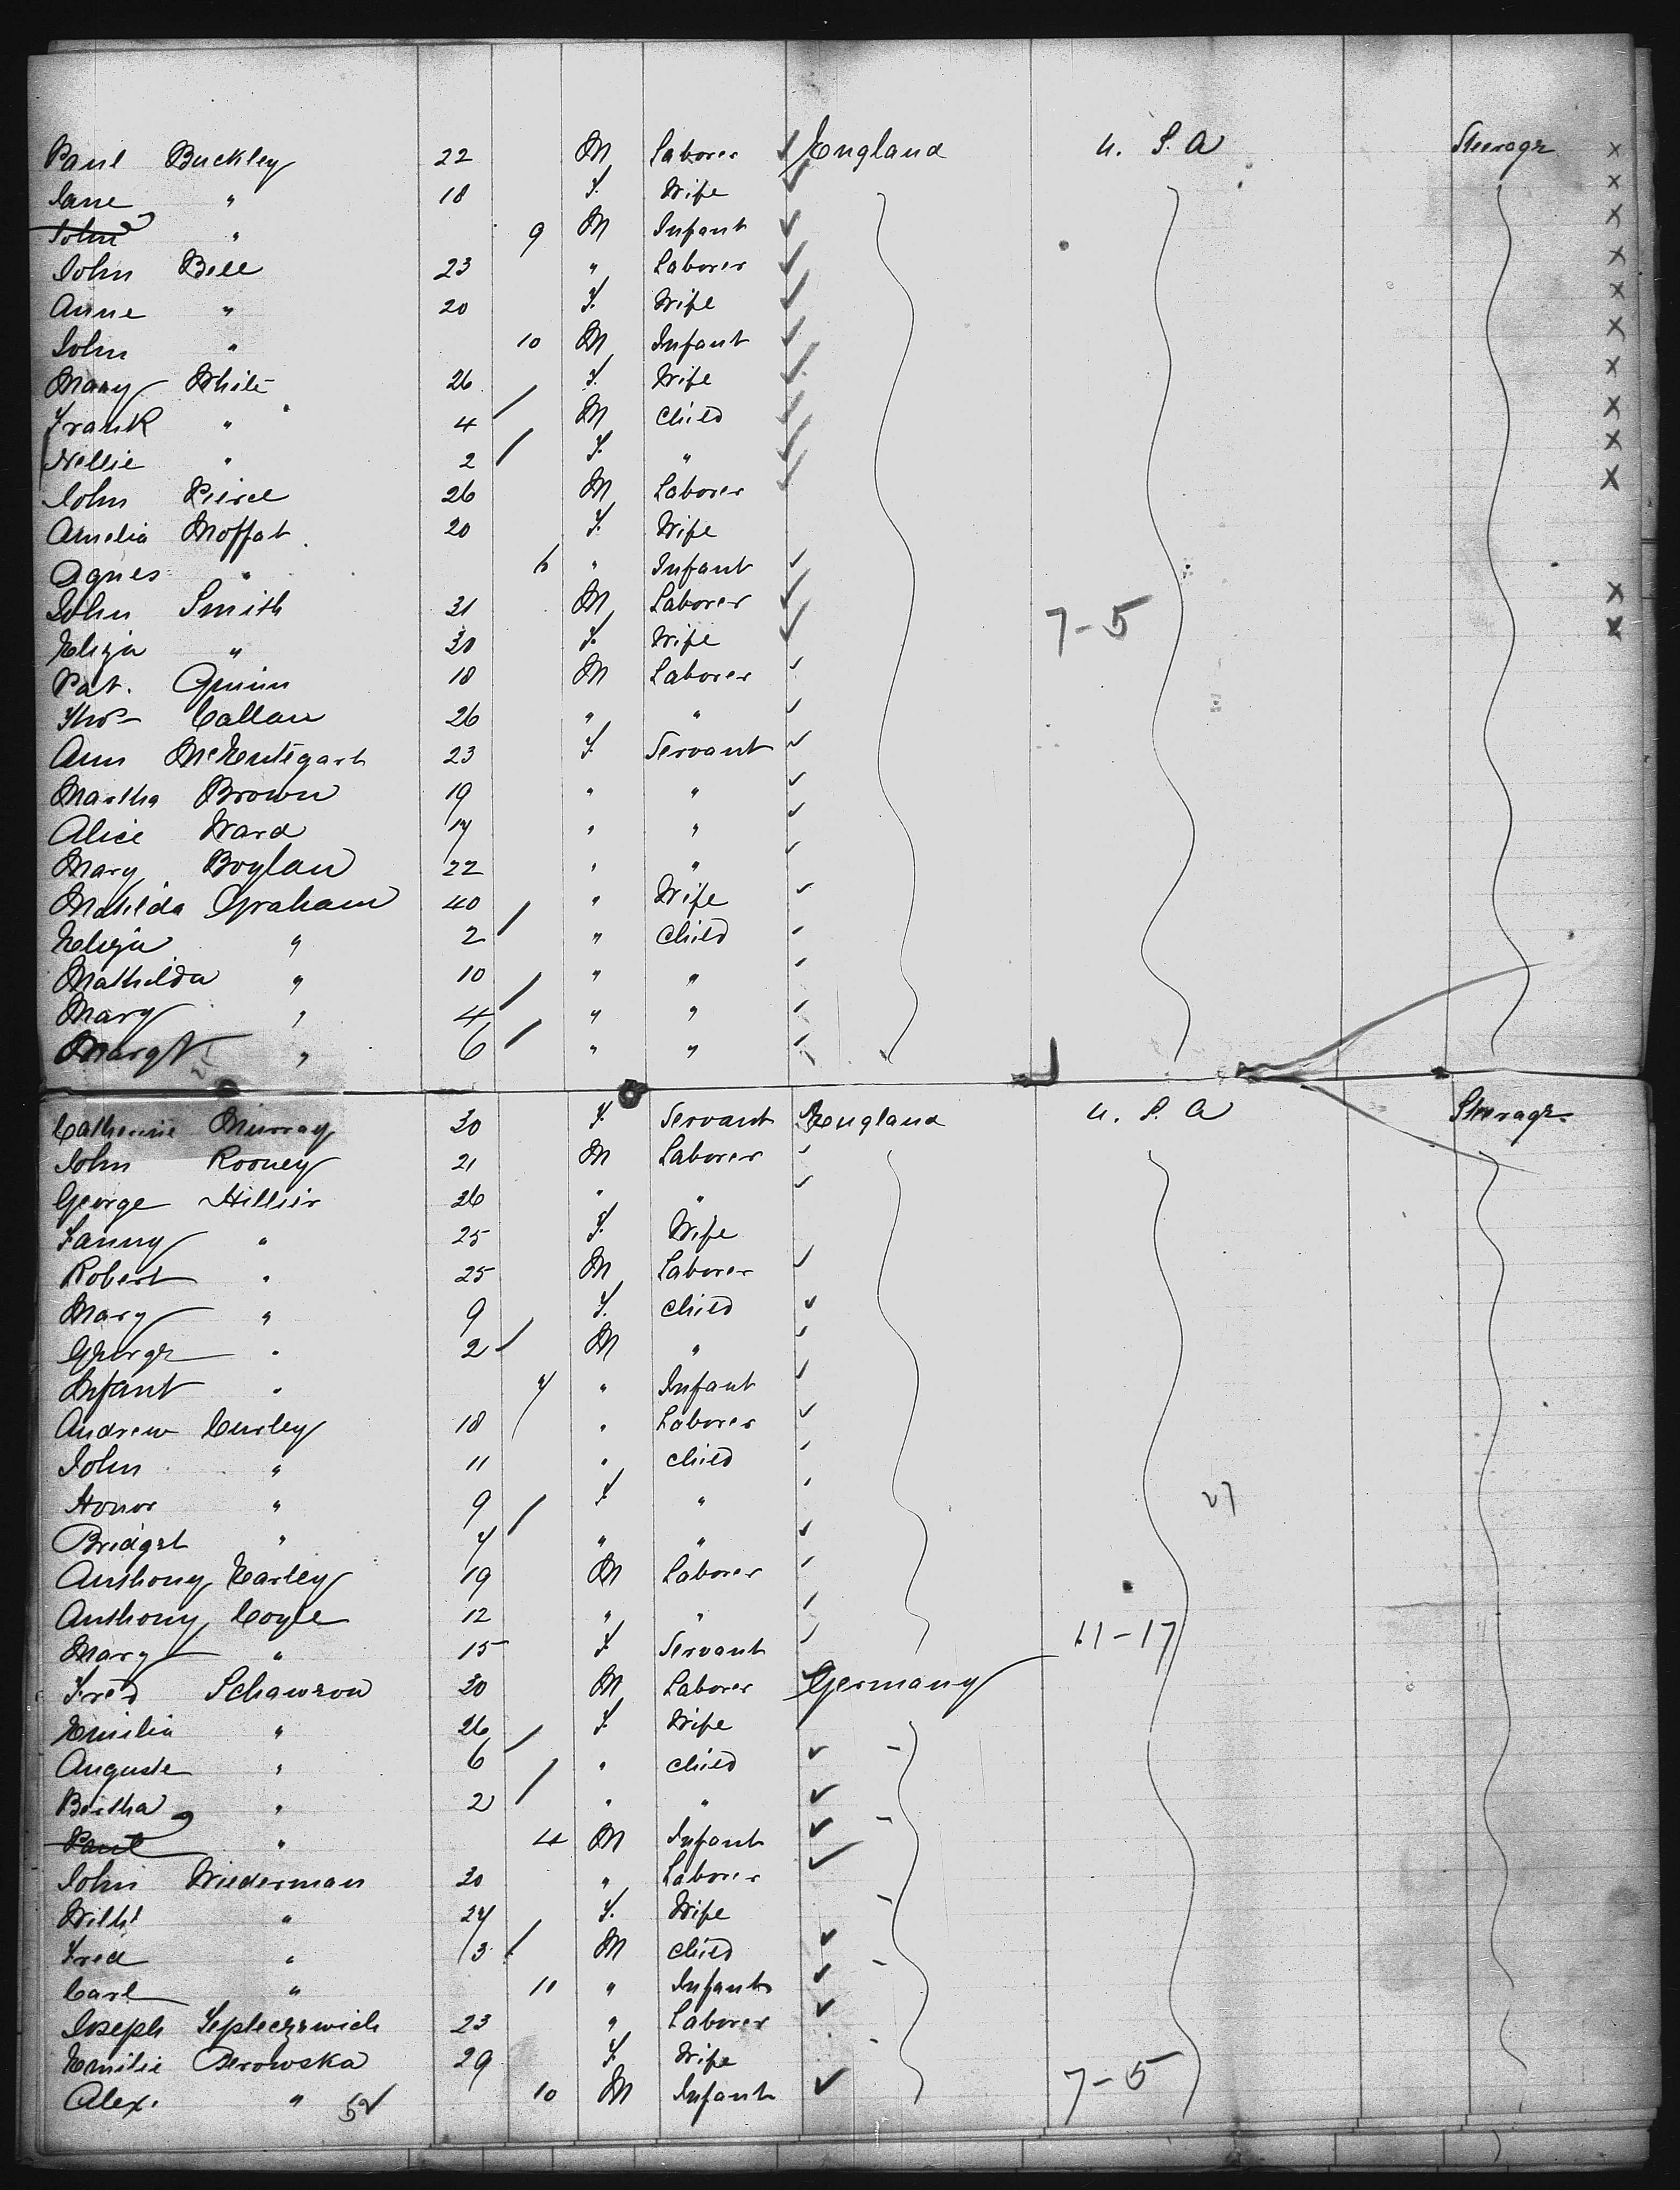 Paul Buckley 22 M Laborer England U. S. A Steerage
Jane " 18 F. Wife
John " 9 M Infant
John Bell 23 " Laborer
Anne " 20 F. Wife
John " 10 M Infant
Mary White 26 F. Wife
Frank " 4 M child
Nellie " 2 F. "
John Pierce 26 M Laborer
Amelia Moffat 20 F. Wife
Agnes " 6 " Infant
John Smith 31 M Laborer
Eliza " 30 F. Wife 7-5
Pat. Quinn 18 M Laborer
Thos Callan 26 " "
Ann McEntegart 23 F Servant
Martha Brown 19 " "
Alice Ward 17 " "
Mary Boylan 22 " "
Matilda Graham 40 " Wife
Eliza " 2 " child
Mathilda " 10 " "
Mary " 4 " "
Margt " 6 " "
Catherine Murray 30 F. Servant England U. S. A Steerage
John Rooney 21 M Laborer
George Hillier 26 " "
Fanny " 25 F. Wife
Robert " 25 M Laborer
Mary " 9 F. child
George " 2 M "
Infant " 7 " Infant
Andrew Curley 18 " Laborer
John " 11 " child
Honor " 9 F "
Bridget " 7 " "
Anthony Earley 19 M Laborer
Anthony Coyle 12 " "
Mary " 15 F Servant 11-17
Fred Schawrow 30 M Laborer Germany
Emilia " 26 F Wife
Auguste " 6 " child
Bertha " 2 " "
Paul " 4 M Infant
John Wiederman 30 " Laborer
Wilhl " 27 F. Wife
Fred " 3 M child
Carl " 11 " Infant
Joseph 23 " Laborer
Emilie Berowska 29 F Wife
Alex. " 10 M Infant 7-5